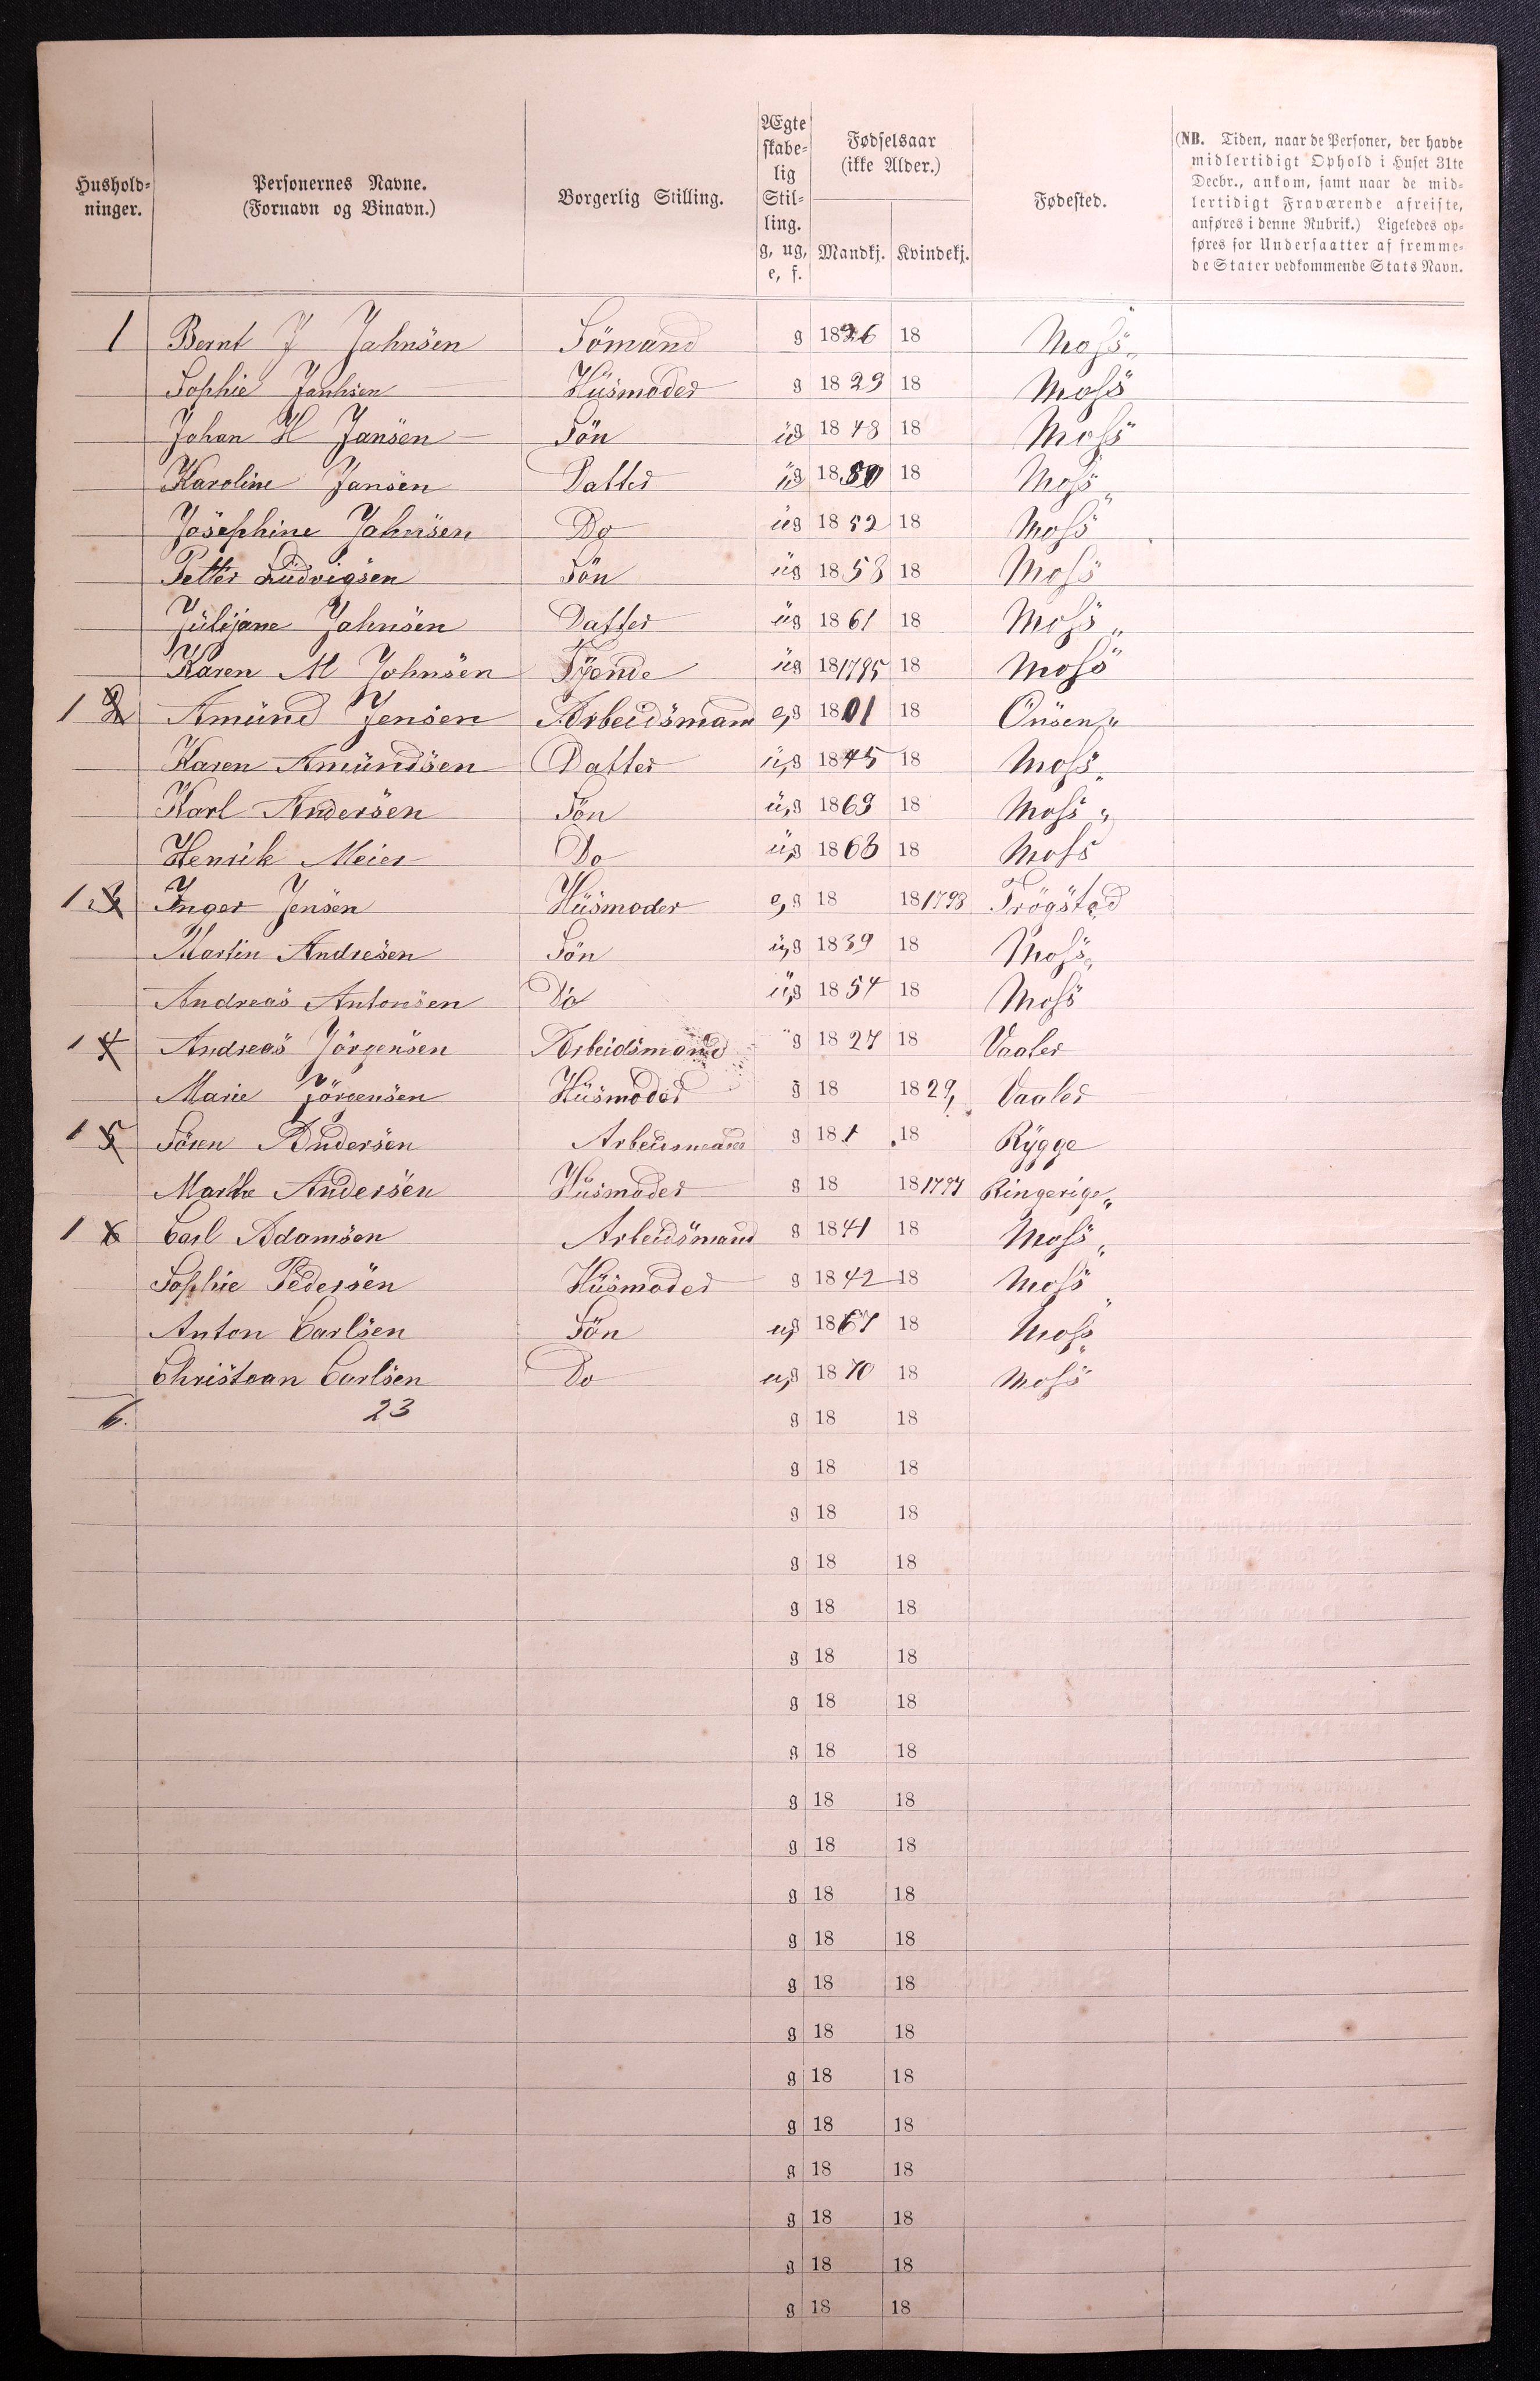 Hushold-ninger. Personernes Navne. (Fornavn og Binavn.) Borgerlig Stilling. Ægte skabe-lig Stil-ling. g, ug, e, f. Fødselsaar (ikke Alder.) Mandkj. Kvindekj. Fødested. (NB. Tiden, naar de Personer, der havde midlertidigt Ophold i Huset 31te Decbr., ankom, samt naar de mid-lertidigt Fraværende afreiste, anføres i denne Rubrik.) Ligeledes op-føres for Undersaatter af fremme-de Stater vedkommende Stats Navn.
1 Bernt J Jahnsen Sömand g 1826 18 Moss
Sophie Janhsen Husmoder g 1829 18 Moss
Johan H Jansen Sön ug 1848 18 Moss
Karoline Jansen Datter ug 1850 18 Moss
Josephine Jahnsen Do ug 1852 18 Moss
Petter Ludvigsen Sön ug 1858 18 Moss
Julijane Jahnsen Datter ug 1861 18 Moss
Karen M Johnsen Tjende ug 181795 18 Moss
1 2 Amund Jensen Arbeidsmand e,g 1801 18 Onsen
Karen Amundsen Datter u,g 1845 18 Moss
Karl Andersen Sön u,g 1869 18 Moss
Henrik Meier Do u,g 1868 18 Moss
1 3 Inger Jensen Husmoder e,g 18 181798 Trögstad
Martin Andresen Sön u,g 1839 18 Moss
Andreas Antonsen Do u,g 1854 18 Moss
1 4 Andreas Jörgensen Arbeidsmand g 1827 18 Vaaler
Marie Jörgensen Husmoder g 18 1829, Vaaler
1 5 Sören Andersen Arbeidsmand g 181 18 Rygge
Marthe Andersen Husmoder g 18 181797 Ringerige
1 6 Carl Adamsen Arbeidsmand g 1841 18 Moss
Sophie Pedersen Husmoder g 1842 18 Moss
Anton Carlsen Sön ug 1867 18 Moss
Christian Carlsen Do u,g 1870 18 Moss
6. 23 g 18 18
g 18 18
g 18 18
g 18 18
g 18 18
g 18 18
g 18 18
g 18 18
g 18 18
g 18 18
g 18 18
g 18 18
g 18 18
g 18 18
g 18 18
g 18 18
g 18 18
g 18 18
g 18 18
g 18 18